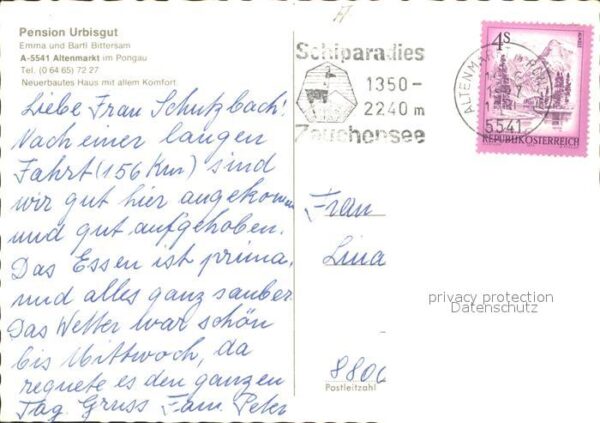 Pension Urbisgut
Emma und Bartl Bittersam
A-5541 Altenmarkt im Pongau
Tel. (0 64 65) 72 27
Neuerbautes Haus mit allem Komfort
Liebe Frau Schutzbach!
Nach einer langen
Fahrt (156 Km) sind
wir gut hier angekomm
und gut aufgehoben.
Das Essen ist prima,
und alles ganz sauber
Das Wetter war schön
bis Mittwoch, da
regnete es den ganzen
Tag. Gruss Fam. Peter
Schiparadies
1350–
2240 m
Zauchensee
ALTENMARKT
5541
4S
REPUBLIK ÖSTERREICH
Frau
Lina
privacy protection
Datenschutz
8806
Postleitzahl